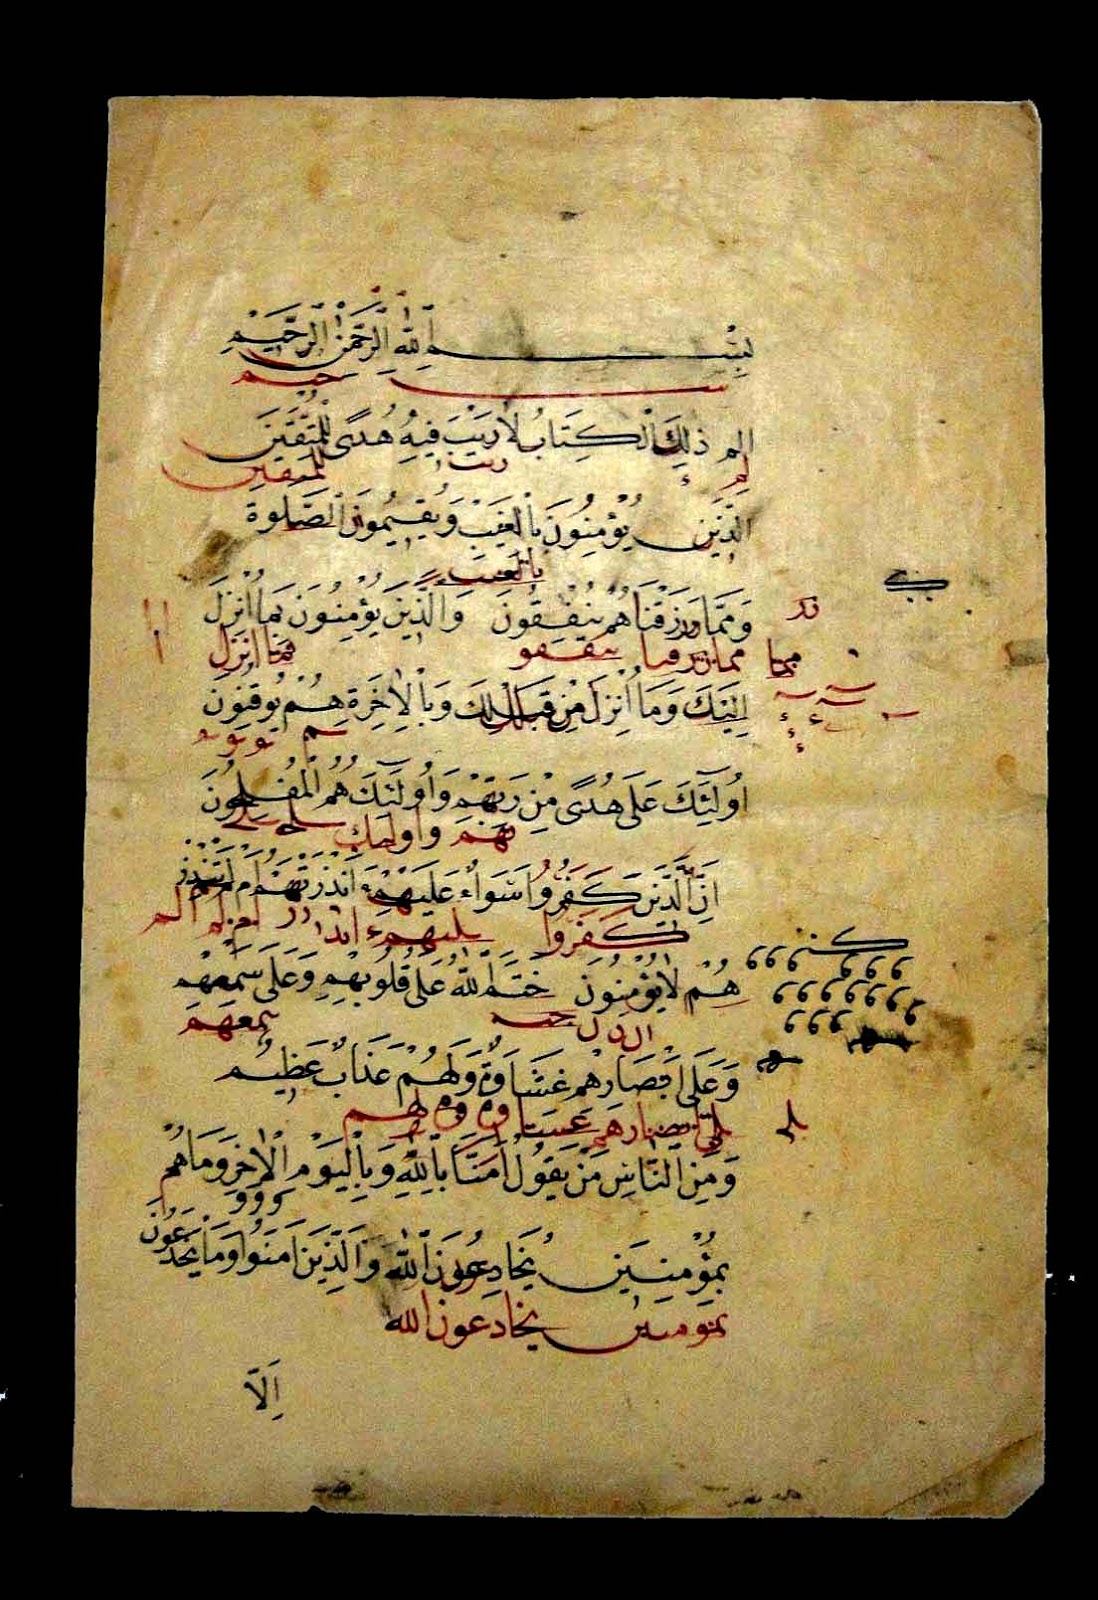 بِسْمِ اللّٰهِ الرَّحْمٰنِ الرَّحِيْمِ
حيم
الم ذٰلِكَ الْكِتَابُ لَا رَيْبَ فِيْهِ هُدًى لِلْمُتَّقِيْنَ
لم ريب للمتقين
الَّذِيْنَ يُؤْمِنُوْنَ بِالْغَيْبِ وَيُقِيْمُوْنَ الصَّلٰوةَ
بالغيب
وَمِمَّا رَزَقْنَاهُمْ يُنْفِقُوْنَ وَالَّذِيْنَ يُؤْمِنُوْنَ بِمَا اُنْزِلَ
مما رزقنا ينفقو بما انزل
اِلَيْكَ وَمَا اُنْزِلَ مِنْ قَبْلِكَ وَبِالْاٰخِرَةِ هُمْ يُوْقِنُوْنَ
اُولٰٓئِكَ عَلٰى هُدًى مِنْ رَبِّهِمْ وَاُولٰٓئِكَ هُمُ الْمُفْلِحُوْنَ
بهم واولئك
اِنَّ الَّذِيْنَ كَفَرُوْا سَوَاءٌ عَلَيْهِمْ ءَاَنْذَرْتَهُمْ اَمْ لَمْ تُنْذِرْ
كفروا عليهم
هُمْ لَا يُؤْمِنُوْنَ خَتَمَ اللّٰهُ عَلٰى قُلُوْبِهِمْ وَعَلٰى سَمْعِهِمْ
سمعهم
وَعَلٰى اَبْصَارِهِمْ غِشَاوَةٌ وَلَهُمْ عَذَابٌ عَظِيْمٌ
لى ابصارهم غشاوة ولهم
وَمِنَ النَّاسِ مَنْ يَقُوْلُ اٰمَنَّا بِاللّٰهِ وَبِالْيَوْمِ الْاٰخِرِ وَمَا هُمْ
بِمُؤْمِنِيْنَ يُخَادِعُوْنَ اللّٰهَ وَالَّذِيْنَ اٰمَنُوْا وَمَا يَخْدَعُوْنَ
بمومنين يخادعون الله
اِلَّا